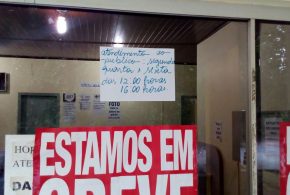 atendimento ao
público: segunda
quarta e sexta
das 12:00 horas
16:00 horas
FOTO
HOR
ATE
DA
ESTAMOS EM
GREVE